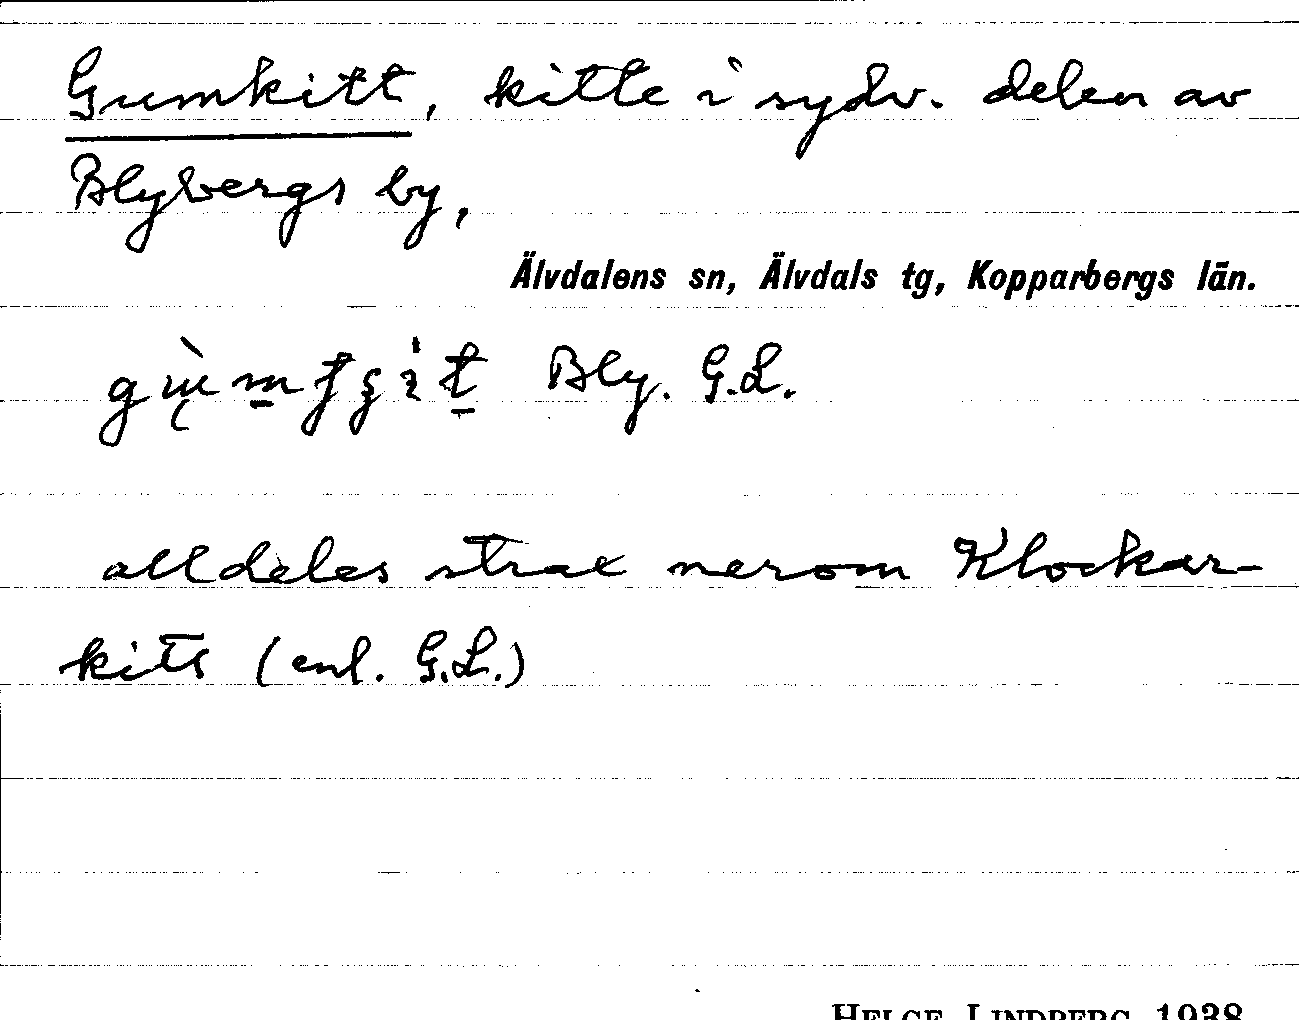 Gumkitt, kitte i sydv. delen av
Blybergs by,
Älvdalens sn, Älvdals tg, Kopparbergs län.
Bly. G.L.
alldeles strax nerom Klockar-
kits (enl. G.L.)
HELGE LINDBERG 1938